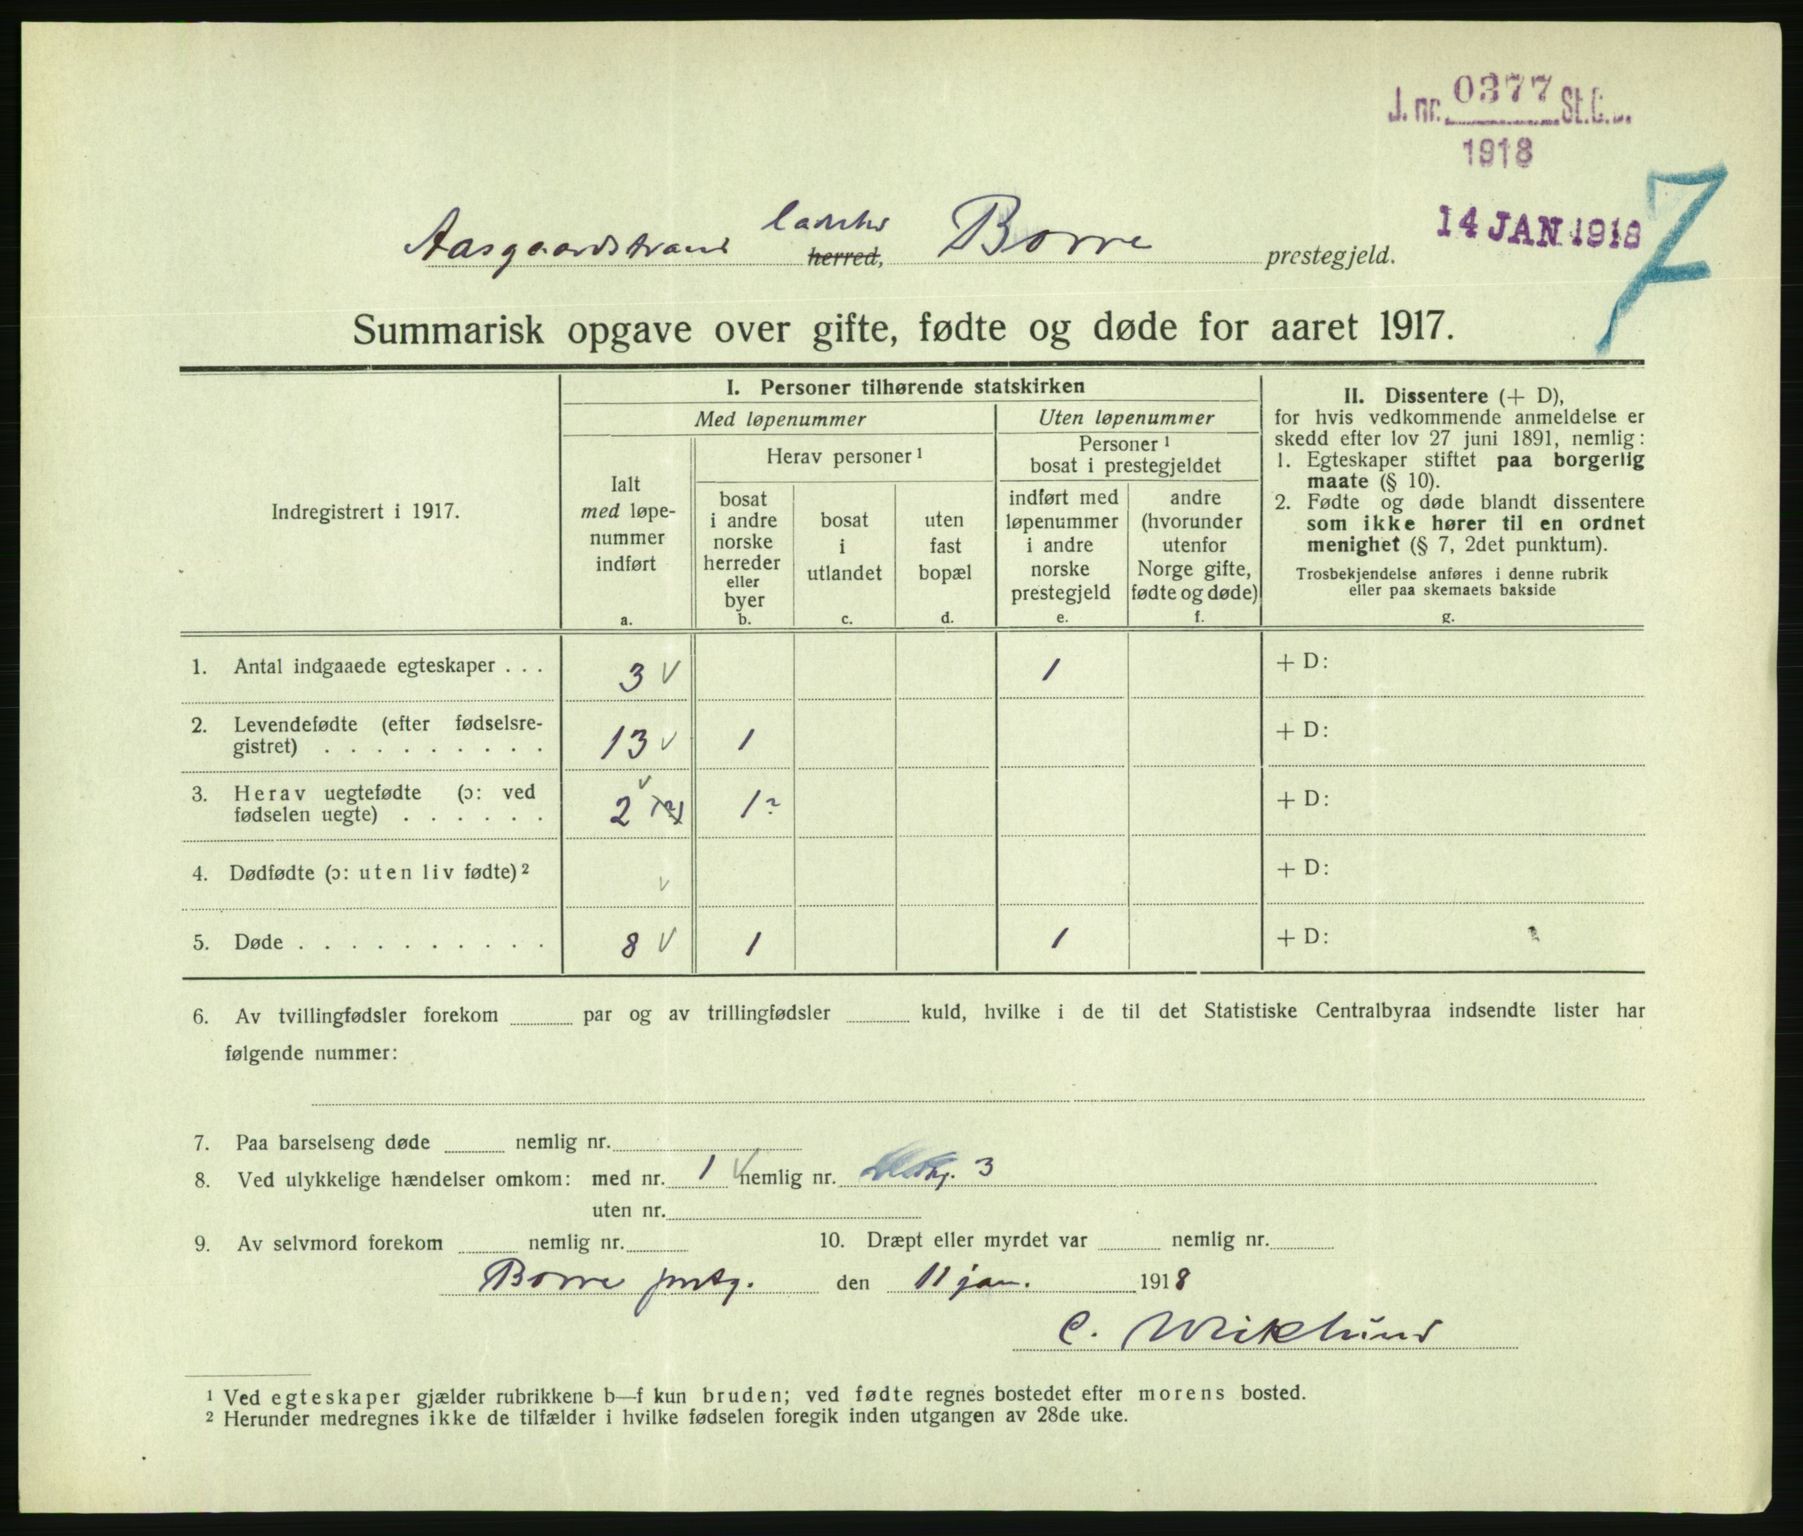 J. nr. 0377 St.C.B.
1918
14 JAN 1918
7
Aasgaardstrand ladested herred, Borre prestegjeld.
Summarisk opgave over gifte, fødte og døde for aaret 1917.
Indregistrert i 1917.
I. Personer tilhørende statskirken
Med løpenummer
Uten løpenummer
Ialt
med løpe-
nummer
indført
a.
Herav personer ¹
bosat
i andre
norske
herreder
eller
byer
b.
bosat
i
utlandet
c.
uten
fast
bopæl
d.
Personer ¹
bosat i prestegjeldet
indført med
løpenummer
i andre
norske
prestegjeld
e.
andre
(hvorunder
utenfor
Norge gifte,
fødte og døde)
f.
II. Dissentere (+ D),
for hvis vedkommende anmeldelse er
skedd efter lov 27 juni 1891, nemlig:
1. Egteskaper stiftet paa borgerlig
maate (§ 10).
2. Fødte og døde blandt dissentere
som ikke hører til en ordnet
menighet (§ 7, 2det punktum).
Trosbekjendelse anføres i denne rubrik
eller paa skemaets bakside
g.
1. Antal indgaaede egteskaper . . . 3 v 1 + D:
2. Levendefødte (efter fødselsre-
gistret) . . . . . . . . . 13 v 1 + D:
3. Herav uegtefødte (ɔ: ved
fødselen uegte) . . . . . . 2 v 1? + D:
4. Dødfødte (ɔ: uten liv fødte) ² v + D:
5. Døde . . . . . . . . . . 8 v 1 1 + D:
6. Av tvillingfødsler forekom par og av trillingfødsler kuld, hvilke i de til det Statistiske Centralbyraa indsendte lister har
følgende nummer:
7. Paa barselseng døde nemlig nr.
8. Ved ulykkelige hændelser omkom: med nr. 1 v nemlig nr. 3
uten nr.
9. Av selvmord forekom nemlig nr. 10. Dræpt eller myrdet var nemlig nr.
Borre prstg. den 11 jan. 1918
C. Wiklund
¹ Ved egteskaper gjælder rubrikkene b—f kun bruden; ved fødte regnes bostedet efter morens bosted.
² Herunder medregnes ikke de tilfælder i hvilke fødselen foregik inden utgangen av 28de uke.